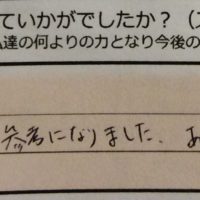 ていかがでしたか？（
達の何よりの力となり今後の
参考になりました、あ